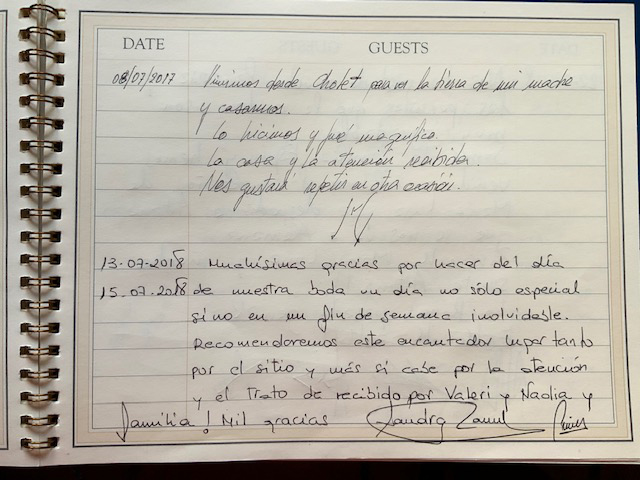 DATE GUESTS
08/07/2017 Vinimos desde Cholet para ver la tierra de mi madre
y casarnos.
Lo hicimos y fué magnífico.
La casa y la atención recibida.
Nos gustaría repetir en otra ocasión.
13-07-2018 Muchísimas gracias por hacer del día
15-07-2018 de nuestra boda un día no sólo especial
sino en un fin de semana inolvidable.
Recomendaremos este encantador lugar tanto
por el sitio y más si cabe por la atención
y el trato de recibido por Valeri y Nadia y
familia! Mil gracias Sandra